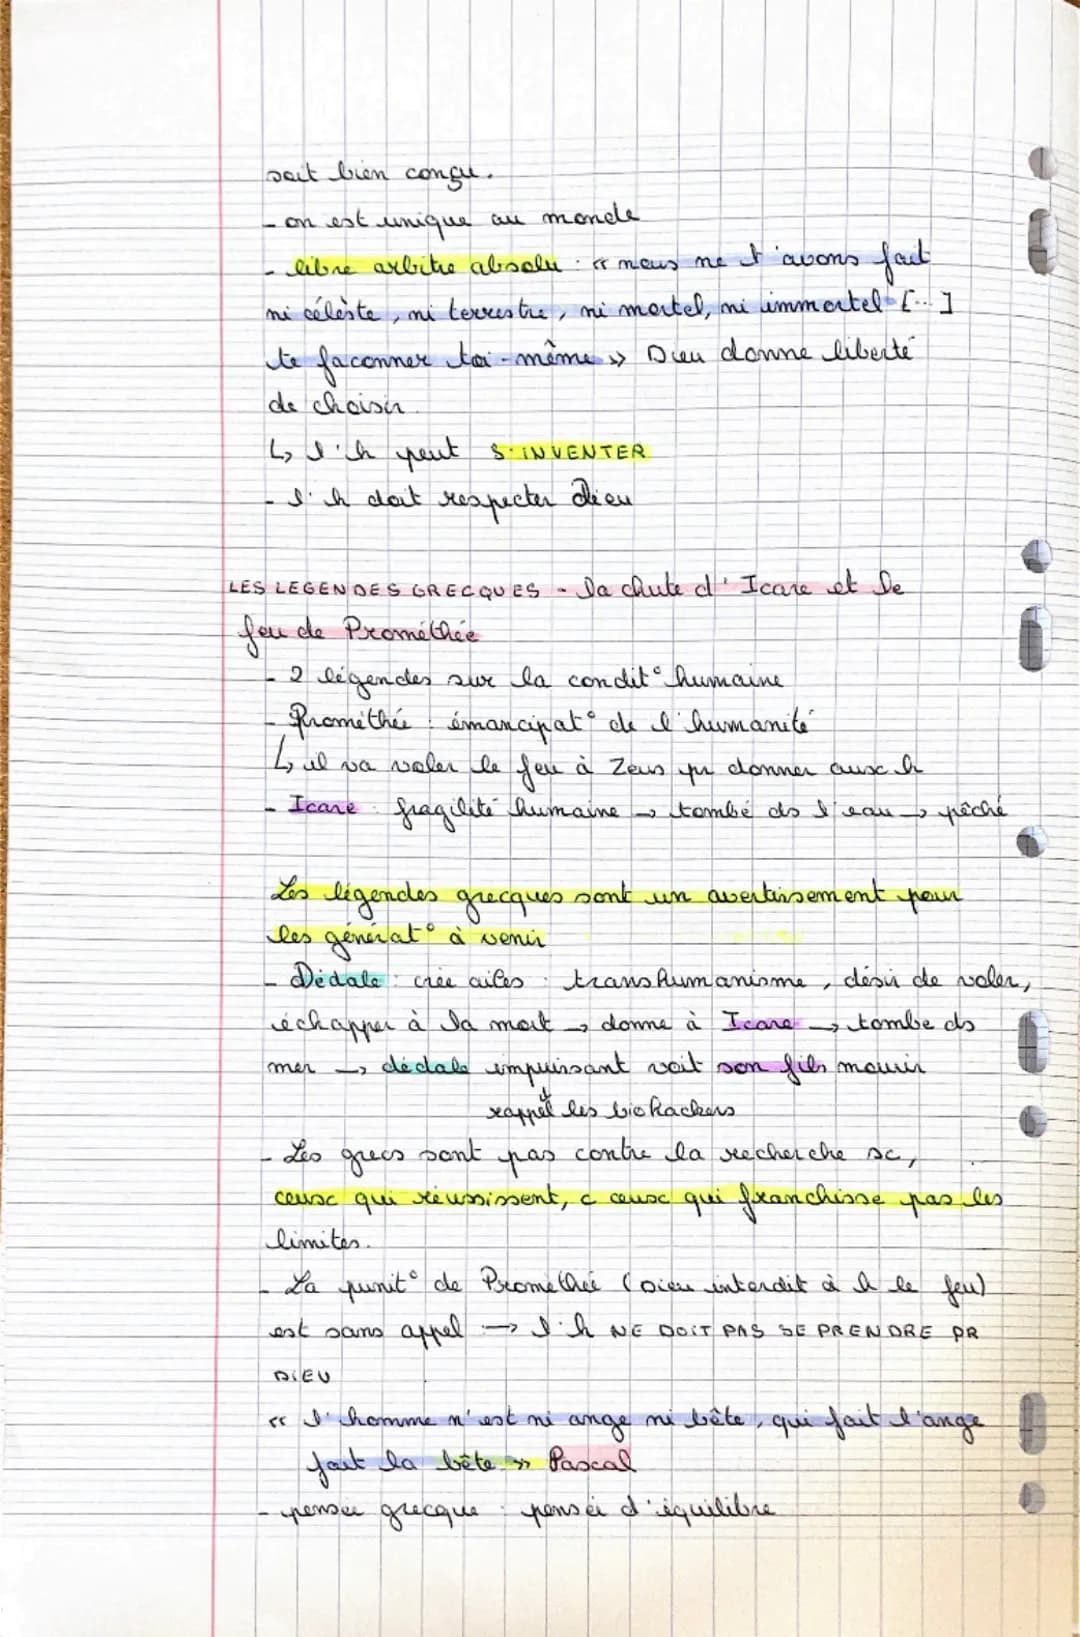 soit bien conçu.
- on est unique au monde
- libre arbitre absolu : « nous ne t'avons fait
ni céleste, ni terrestre, ni mortel, ni immortel [...]
te façonner toi-même » Dieu donne liberté
de choisir.
↳ l'h peut S'INVENTER
- l'h doit respecter Dieu
LES LEGENDES GRECQUES - la chute d'Icare et le
feu de Prométhée
- 2 légendes sur la condit° humaine
- Prométhée : émancipat° de l'humanité
↳ il va voler le feu à Zeus pr donner aux h
- Icare : fragilité humaine → tombé ds l'eau → pêché
Les légendes grecques sont un avertissement pour
les générat° à venir
- Dédale : crée ailes : transhumanisme, désir de voler,
échapper à la mort → donne à Icare → tombe ds
mer → dédale impuissant voit son fils mourir
↓
rappel les biohackers
- Les grecs sont pas contre la recherche sc,
ceux qui réussissent, c ceux qui franchisse pas les
limites.
- La punit° de Prométhée (Dieu interdit à h le feu)
est sans appel → l'h NE DOIT PAS SE PRENDRE PR
DIEU
« l'homme n'est ni ange ni bête, qui fait l'ange
fait la bête » Pascal
- pensée grecque : pensée d'équilibre